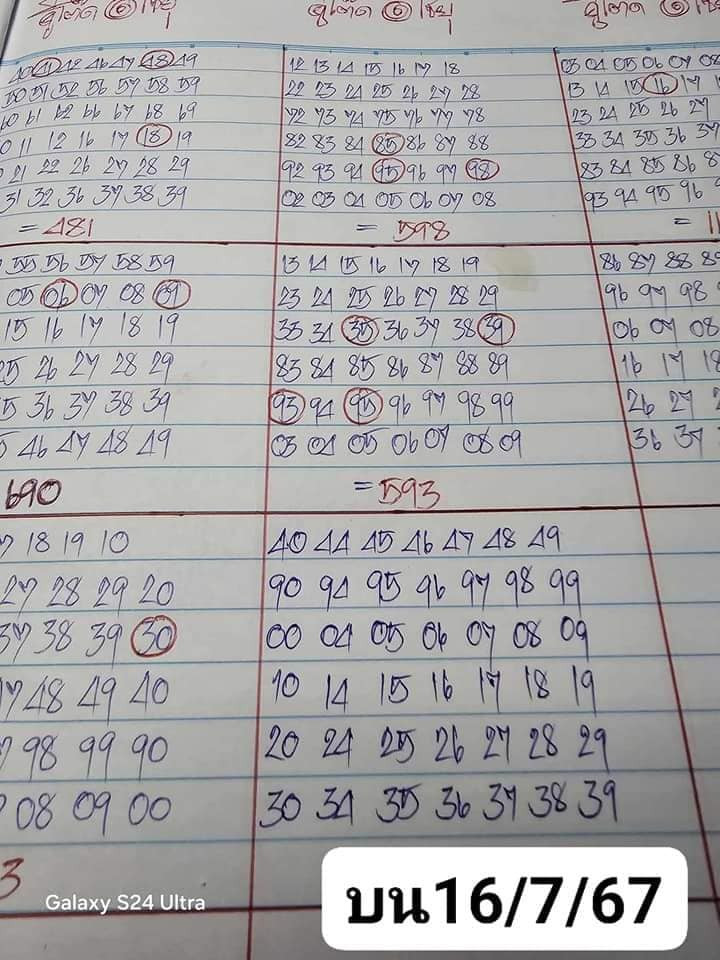 40 41 42 46 47 48 49
50 51 52 56 57 58 59
60 61 62 66 67 68 69
10 11 12 16 17 18 19
21 22 26 27 28 29
31 32 36 37 38 39
= 481
12 13 14 15 16 17 18
22 23 24 25 26 27 28
72 73 74 75 76 77 78
82 83 84 85 86 87 88
92 93 94 95 96 97 98
02 03 04 05 06 07 08
= 598
03 04 05 06 07 08
13 14 15 16 17
23 24 25 26 27
33 34 35 36 37
83 84 85 86
93 94 95 96
= 11
55 56 57 58 59
05 06 07 08 09
15 16 17 18 19
25 26 27 28 29
35 36 37 38 39
45 46 47 48 49
690
13 14 15 16 17 18 19
23 24 25 26 27 28 29
33 34 35 36 37 38 39
83 84 85 86 87 88 89
93 94 95 96 97 98 99
03 04 05 06 07 08 09
= 593
86 87 88 89
96 97 98
06 07 08
16 17 18
26 27
36 37
17 18 19 10
27 28 29 20
37 38 39 30
47 48 49 40
98 99 90
08 09 00
3
40 44 45 46 47 48 49
90 94 95 96 97 98 99
00 04 05 06 07 08 09
10 14 15 16 17 18 19
20 24 25 26 27 28 29
30 34 35 36 37 38 39
Galaxy S24 Ultra
บน16/7/67